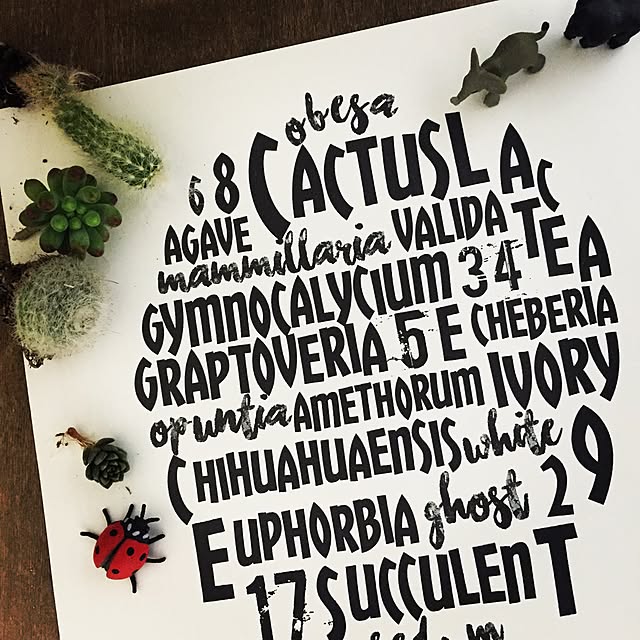 obesa
6 8 CACTUS LACTEA
AGAVE mammillaria VALIDA
GYMNOCALYCIUM 34
GRAPTOVERIA 5 E CHEBERIA
opuntia AMETHORUM IVORY
CHIHUAHUAENSIS white 9
EUPHORBIA ghost 2
17 SUCCULENT
sedum